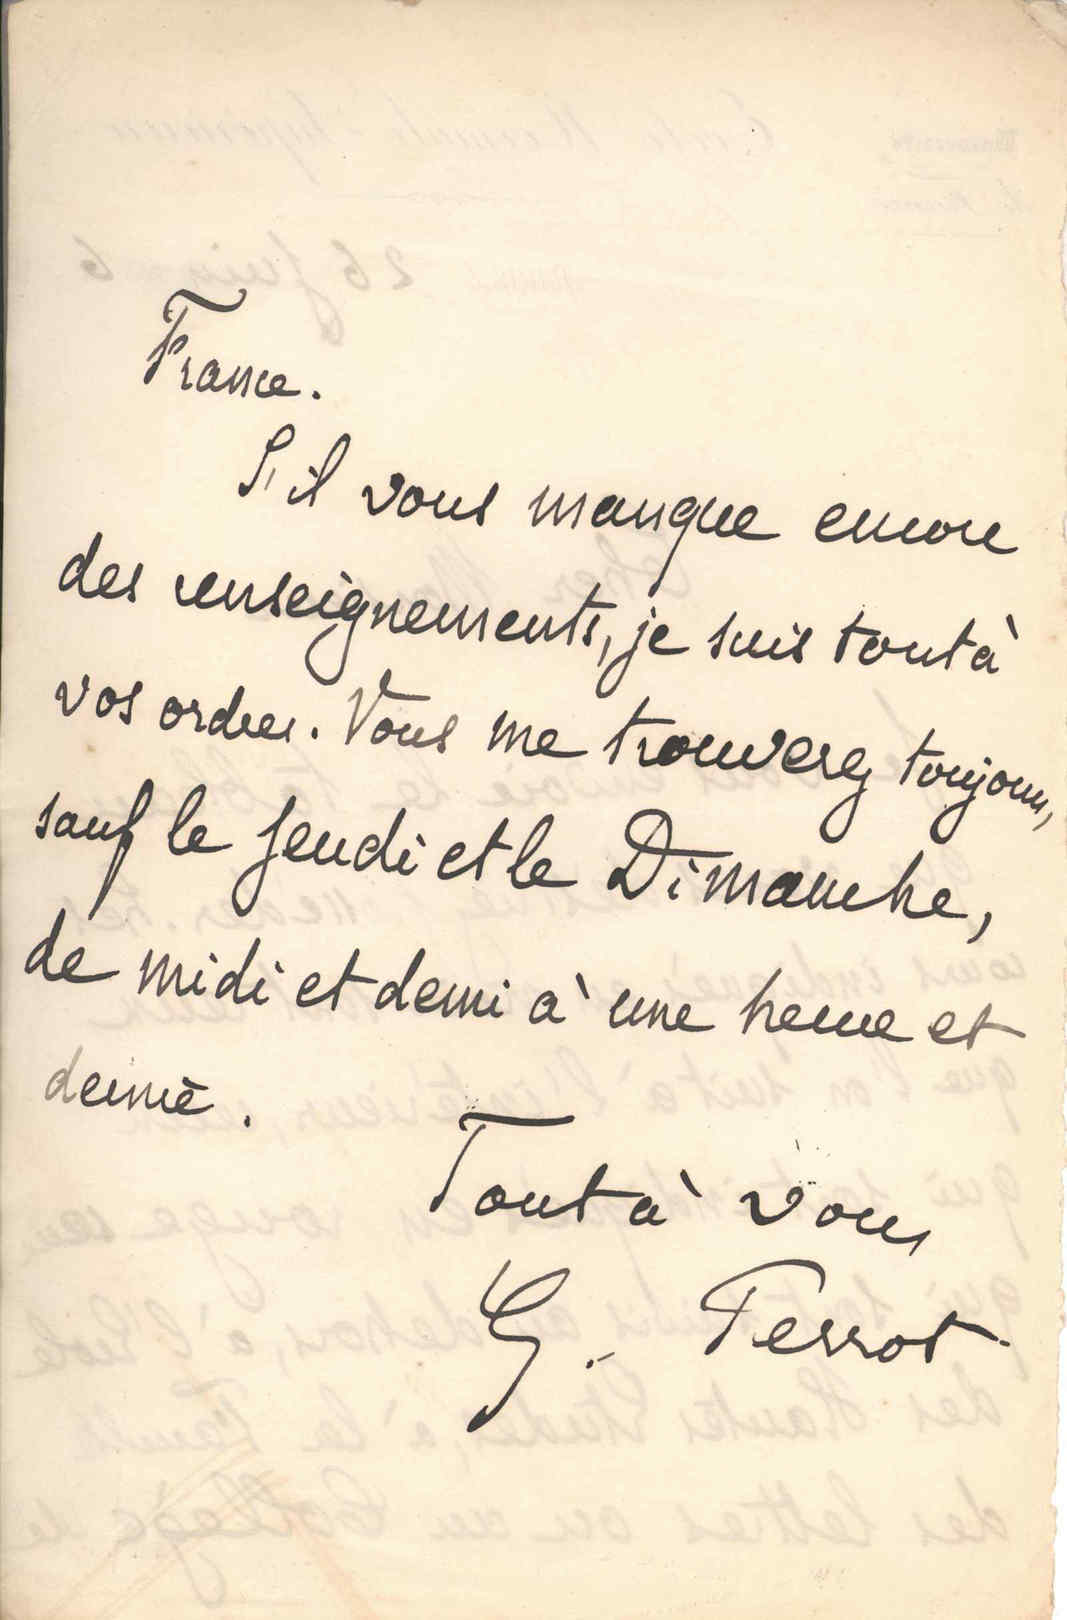 France.
S'il vous manque encore
des renseignements, je suis tout à
vos ordres. Vous me trouverez toujours,
sauf le Jeudi et le Dimanche,
de midi et demi à une heure et
demie.
Tout à vous
G. Perrot